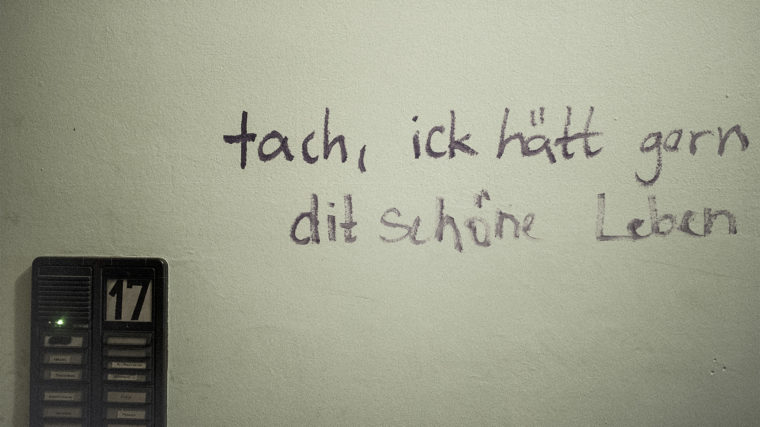 tach, ick hätt gern
dit schöne Leben
17